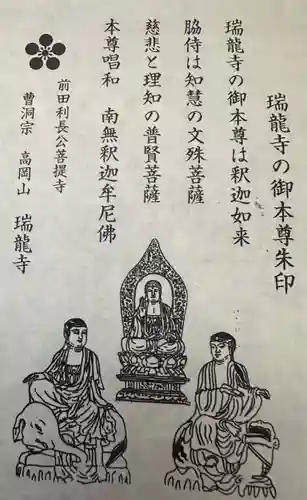 瑞龍寺の御本尊朱印
瑞龍寺の御本尊は釈迦如来
脇侍は知慧の文殊菩薩
慈悲と理知の普賢菩薩
本尊唱和 南無釈迦牟尼佛
前田利長公菩提寺
曹洞宗 高岡山 瑞龍寺